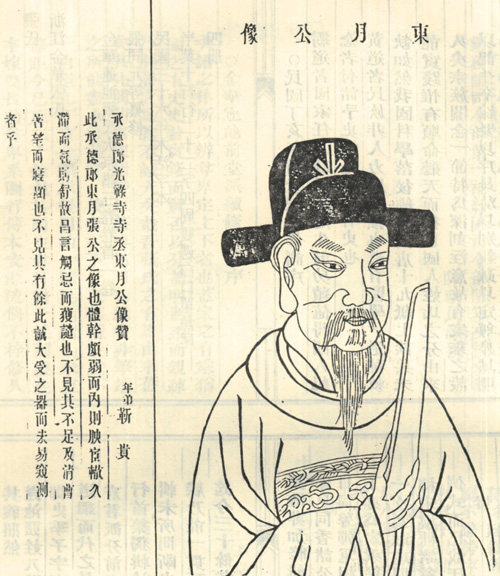 東月公像
承德郎光祿寺寺丞東月公像贊 年弟 靳貴
此承德郎東月張公之像也體幹頗弱而內則腴宦轍久
滯而氣則衎故昌言觸忌而獲譴也不見其不足及清
著望而寢顯也不見其有餘此誠大受之器而未易窺測
者乎